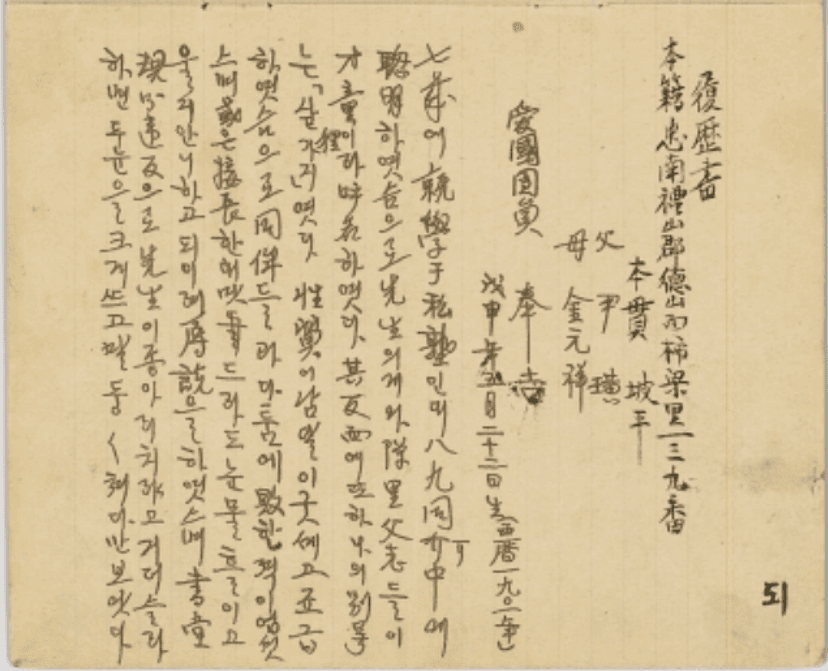 履歷書
本籍 忠南禮山郡德山面柿梁里一三九番
本貫 坡平
父 尹璜
母 金元祥
愛國団員 奉吉
戊申年五月二十三日生(西曆一九〇八年)
七歲에 就學于私塾인바 八九同介中에
聰明하엿슴으로 先生의게와 隣里父老들이
才童이라 呼名하엿다. 其反面에 또 하나의 別号
는「살가지」(狸)엿다 性質이 남달이 굿세고 죠급
하엿슴으로 同伴들과 다툼에 敗한 적이 업섯
스며 或은 接長한태 맛드라도 눈물 흘이고
울리 안니하고 되이려 辱說을 하엿스며 書堂
規則違反으로 先生이 종아리 치랴고 거더 슬라
하면 두 눈을 크게 쓰고 말둥말둥 쳐다만 보앗다
51